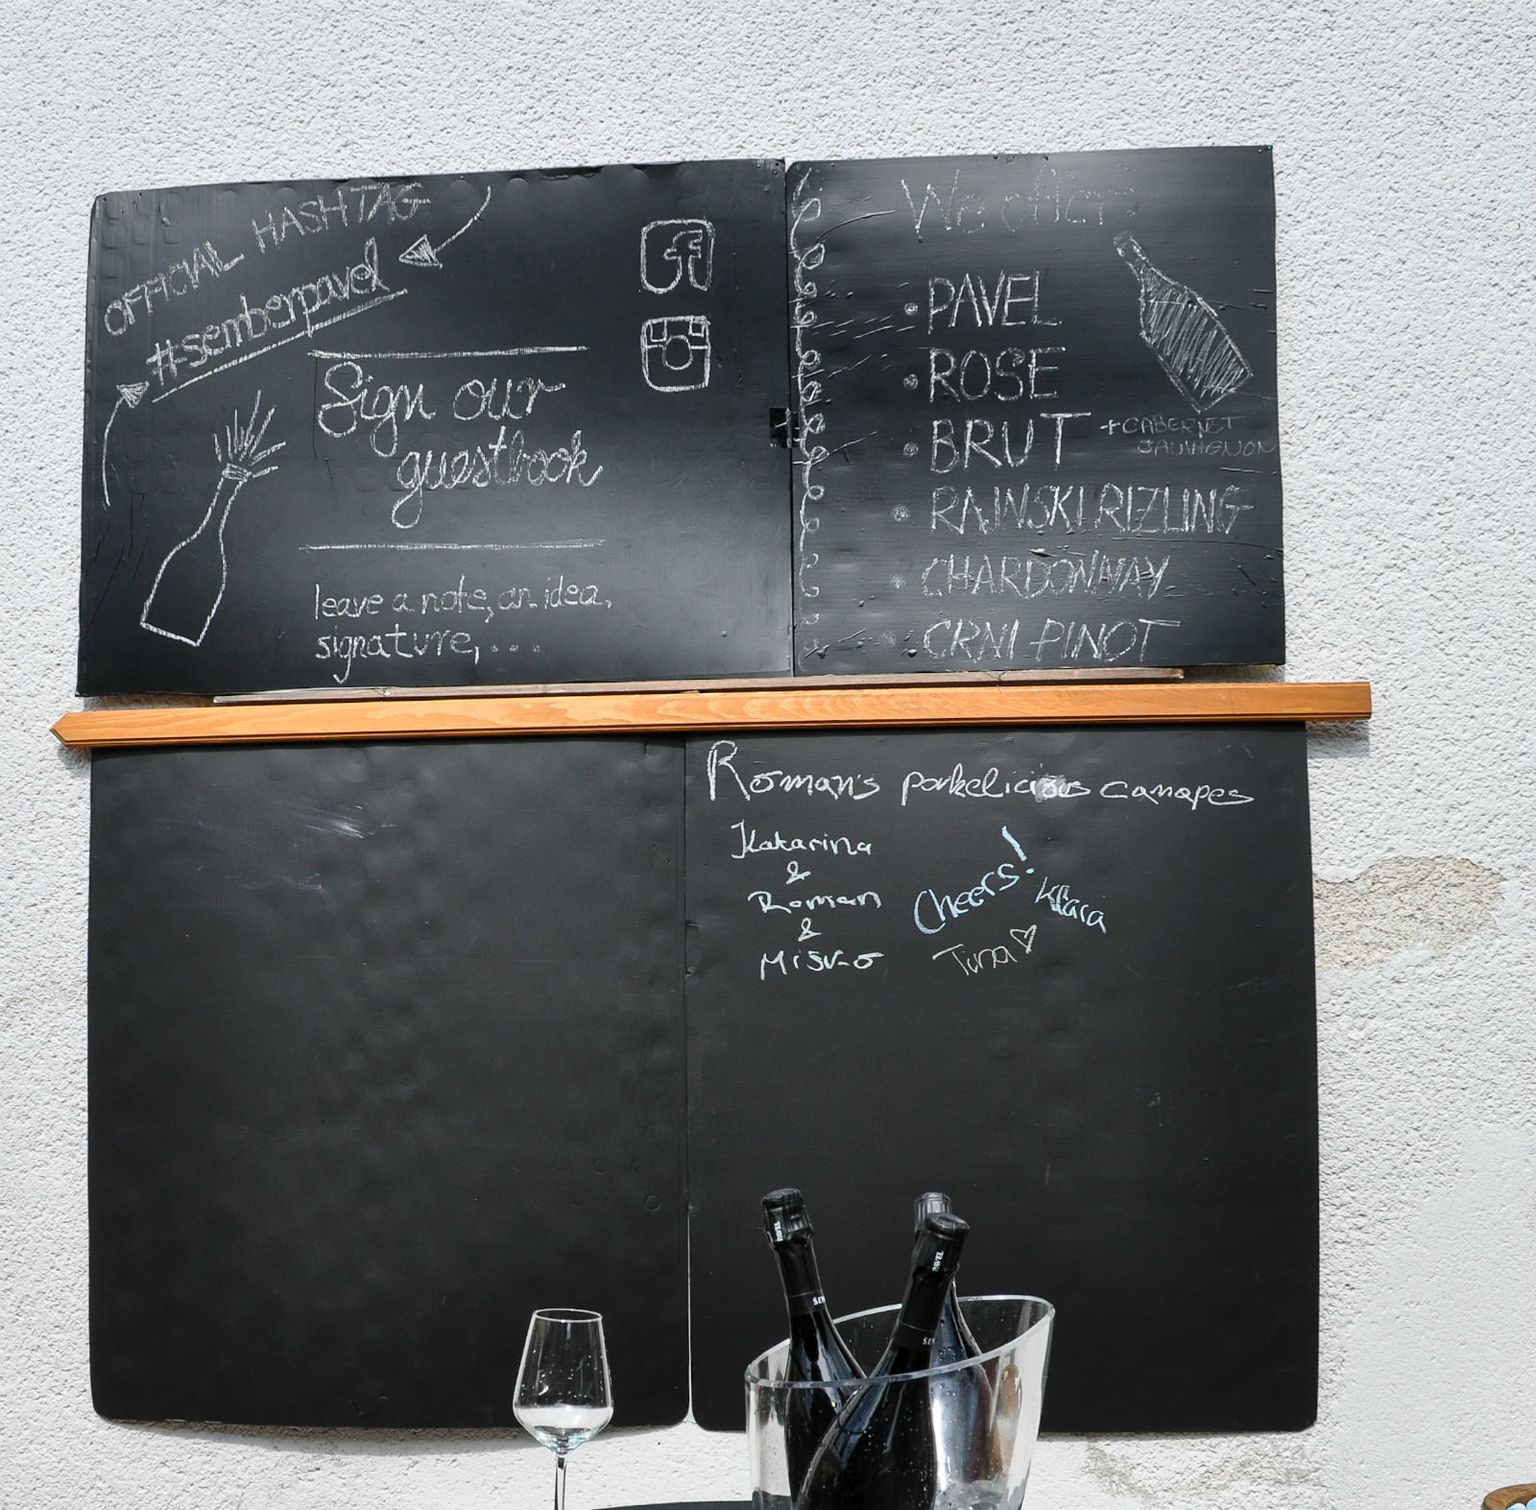 OFFICIAL HASHTAG
#semberpavel
Sign our
guestbook
leave a note, an idea,
signature, ...
We offer:
• PAVEL
• ROSE
• BRUT + CABERNET
SAUVIGNON
• RAJNSKI RIZLING
• CHARDONNAY
• CRNI PINOT
Roman's porkelicious canapes
Katarina
&
Roman
&
Cheers!
Klara
Tina ♡
PAVEL